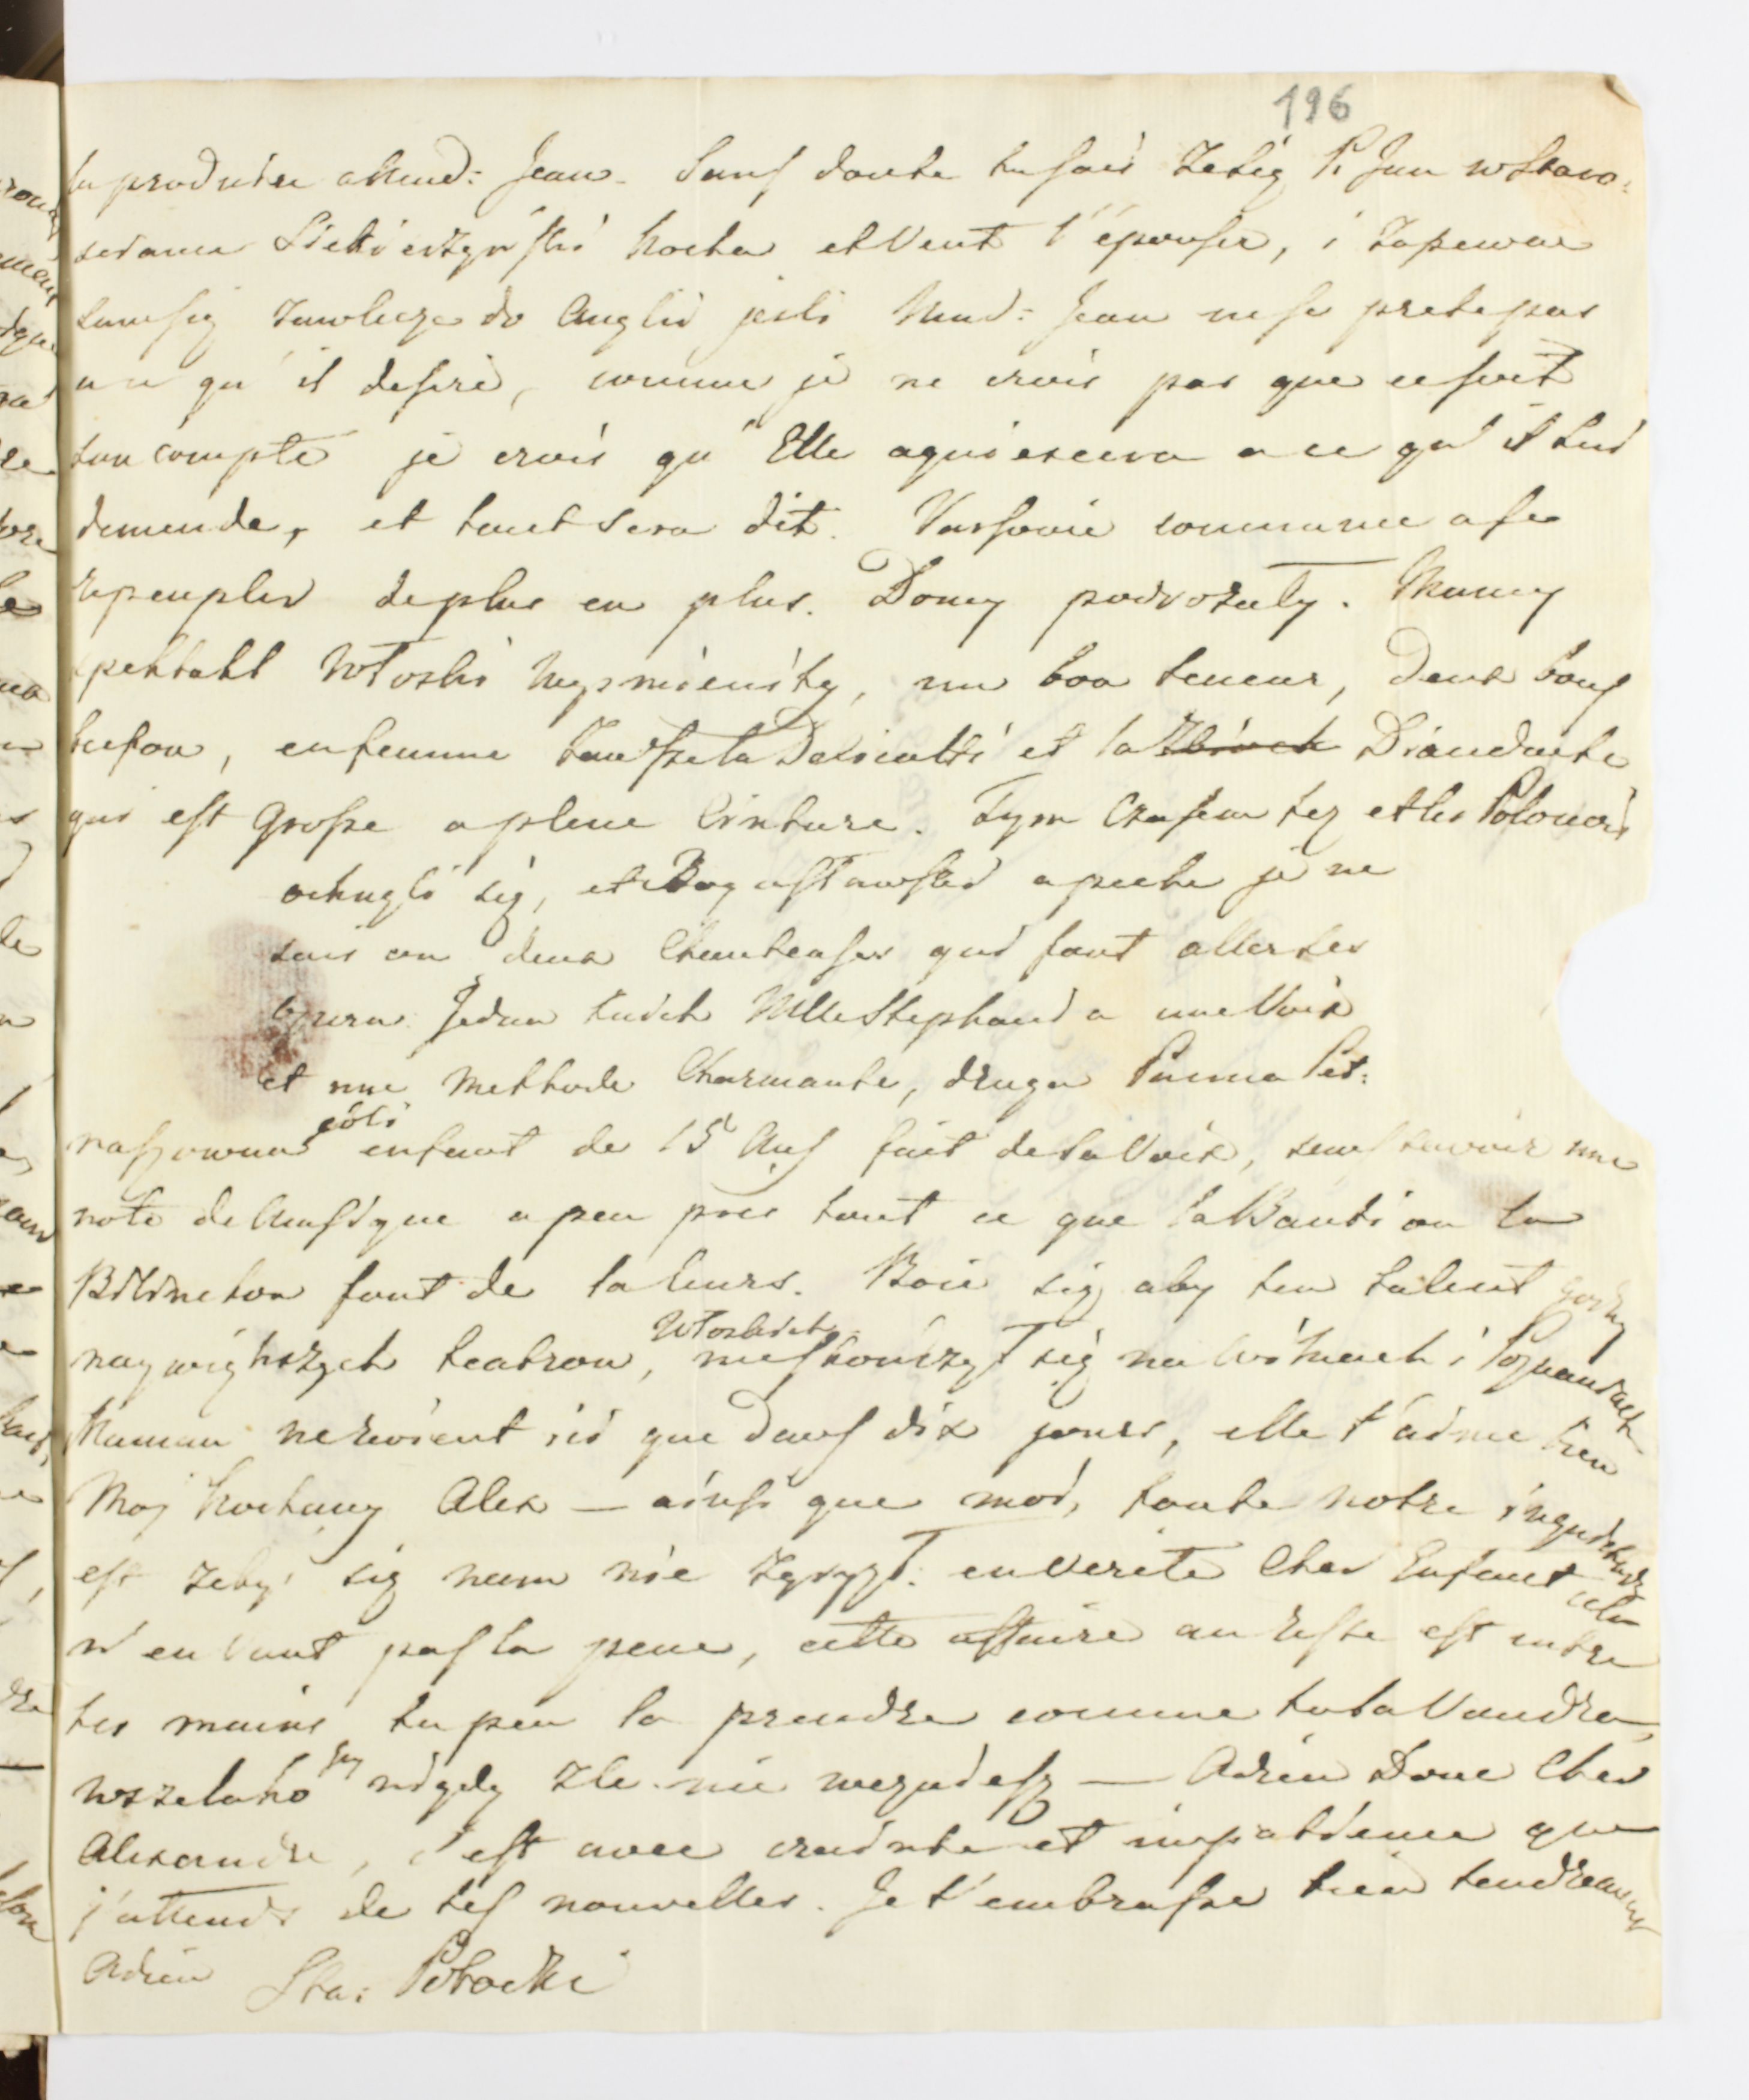 196
la produire a Mad: Jean. Sans doute tu sais że się P. Jan w Staro:
scianie Sieki erzyńskiè kocha et veut l'épouser, i zapewne
tam się zawlecze do Anglii jesli Mad: Jean ne se prete pas
a ce qu'il desire, comme je ne crois pas que ce soit
son compte je crois qu'Elle aquiescera a ce qu'il lui
demande, et tout sera dit. Varsovie commence a se
repeupler de plus en plus. Domy podrożały. Mamy
spektakl Włoski wyśmienity, un bon teneur, deux bons
bufon, en femme zawsze la Davia et la Diandante
qui est Grosse a pleine Ceinture. Tym Czasem też et les Polonois
ocknęli się, et Bogusławski a peché je ne
sais ou deux Chanteuses qui font aller les
opera. Jedna ludek Mlle Stephani a une Voix
et une Methode Charmante, druga Panna Pit:
naszowna côli enfant de 15 Ans fait de sa Voix, sans savoir une
note de Musique a peu pres tout ce que la Banti ou la
Bilineton font de la leurs. Boie się aby ten talent godny
naywiększych teatrow Włoskich, nie skonczył się na Wilnach i Poznaniach
Maman ne revient ici que dans dix jours, elle t'aime bien
Moj kochany Alex — ainsi que moi, toute notre inquietude
est żeby się nam nie zgryzł. en verité Cher Enfant cela
n'en vaut pas la peine, cette affaire au reste est entre
tes mains tu peu la prendre comme tu la Vaudra,
wszelako jey nigdy zle nie wezmiesz — Adieu Donc Cher
Alexandre, c'est avec crainte et impatience que
j'attends de tes nouvelles. Je t'embrasse bien tendrement
Adieu Sta: Potocki